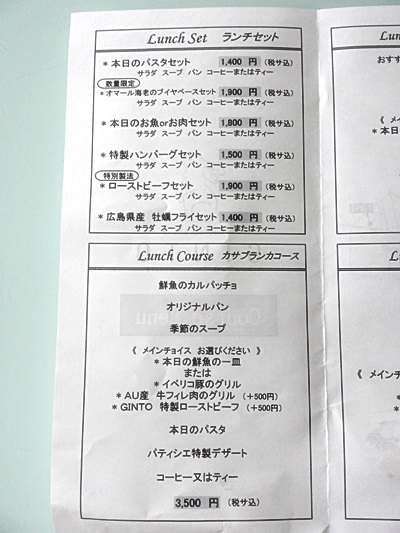 Lunch Set ランチセット
＊本日のパスタセット 1,400 円 (税サ込)
サラダ スープ パン コーヒーまたはティー
数量限定
＊オマール海老のブイヤベースセット 1,900 円 (税サ込)
サラダ スープ パン コーヒーまたはティー
＊本日のお魚orお肉セット 1,800 円 (税サ込)
サラダ スープ パン コーヒーまたはティー
＊特製ハンバーグセット 1,500 円 (税サ込)
サラダ スープ パン コーヒーまたはティー
特別製法
＊ローストビーフセット 1,900 円 (税サ込)
サラダ スープ パン コーヒーまたはティー
＊広島県産 牡蠣フライセット 1,400 円 (税サ込)
サラダ スープ パン コーヒーまたはティー
Lunch Course カサブランカコース
鮮魚のカルパッチョ
オリジナルパン
季節のスープ
《 メインチョイス お選びください 》
＊本日の鮮魚の一皿
または
＊イベリコ豚のグリル
＊AU産 牛フィレ肉のグリル (＋500円)
＊GINTO 特製ローストビーフ (＋500円)
本日のパスタ
パティシエ特製デザート
コーヒー又はティー
3,500 円 (税サ込)
Lun
おすす
《 メイ
＊本日
L
《 メインチ
＊